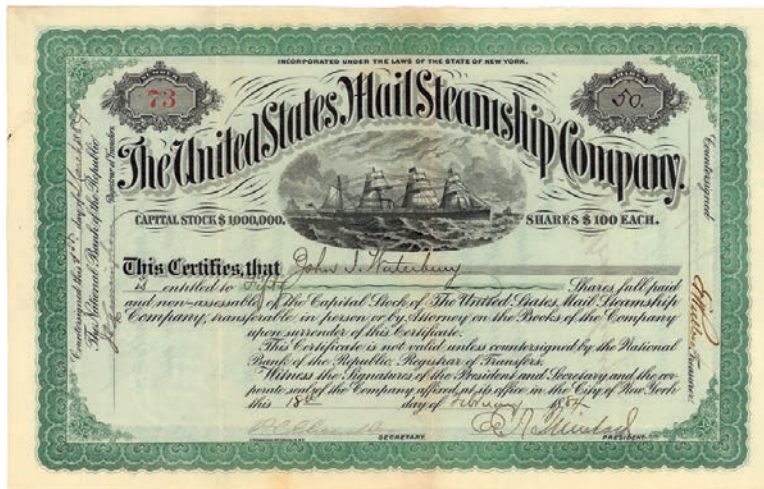 INCORPORATED UNDER THE LAWS OF THE STATE OF NEW YORK.
NUMBER
73
SHARES
50.
The United States Mail Steamship Company.
CAPITAL STOCK $1000,000.
SHARES $100 EACH.
This Certifies, that John I. Waterbury
is entitled to Fifty Shares full paid
and non-assessable of the Capital Stock of The United States Mail Steamship
Company, transferable in person or by Attorney on the Books of the Company
upon surrender of this Certificate.
This Certificate is not valid unless countersigned by the National
Bank of the Republic, Registrar of Transfers.
Witness the Signatures of the President and Secretary and the cor-
porate seal of the Company affixed, at its office, in the City of New York
this 18th day of February 18
SECRETARY.
PRESIDENT.
Countersigned this day of
The National Bank of the Republic
Registrar of Transfers
Countersigned
Treasurer.